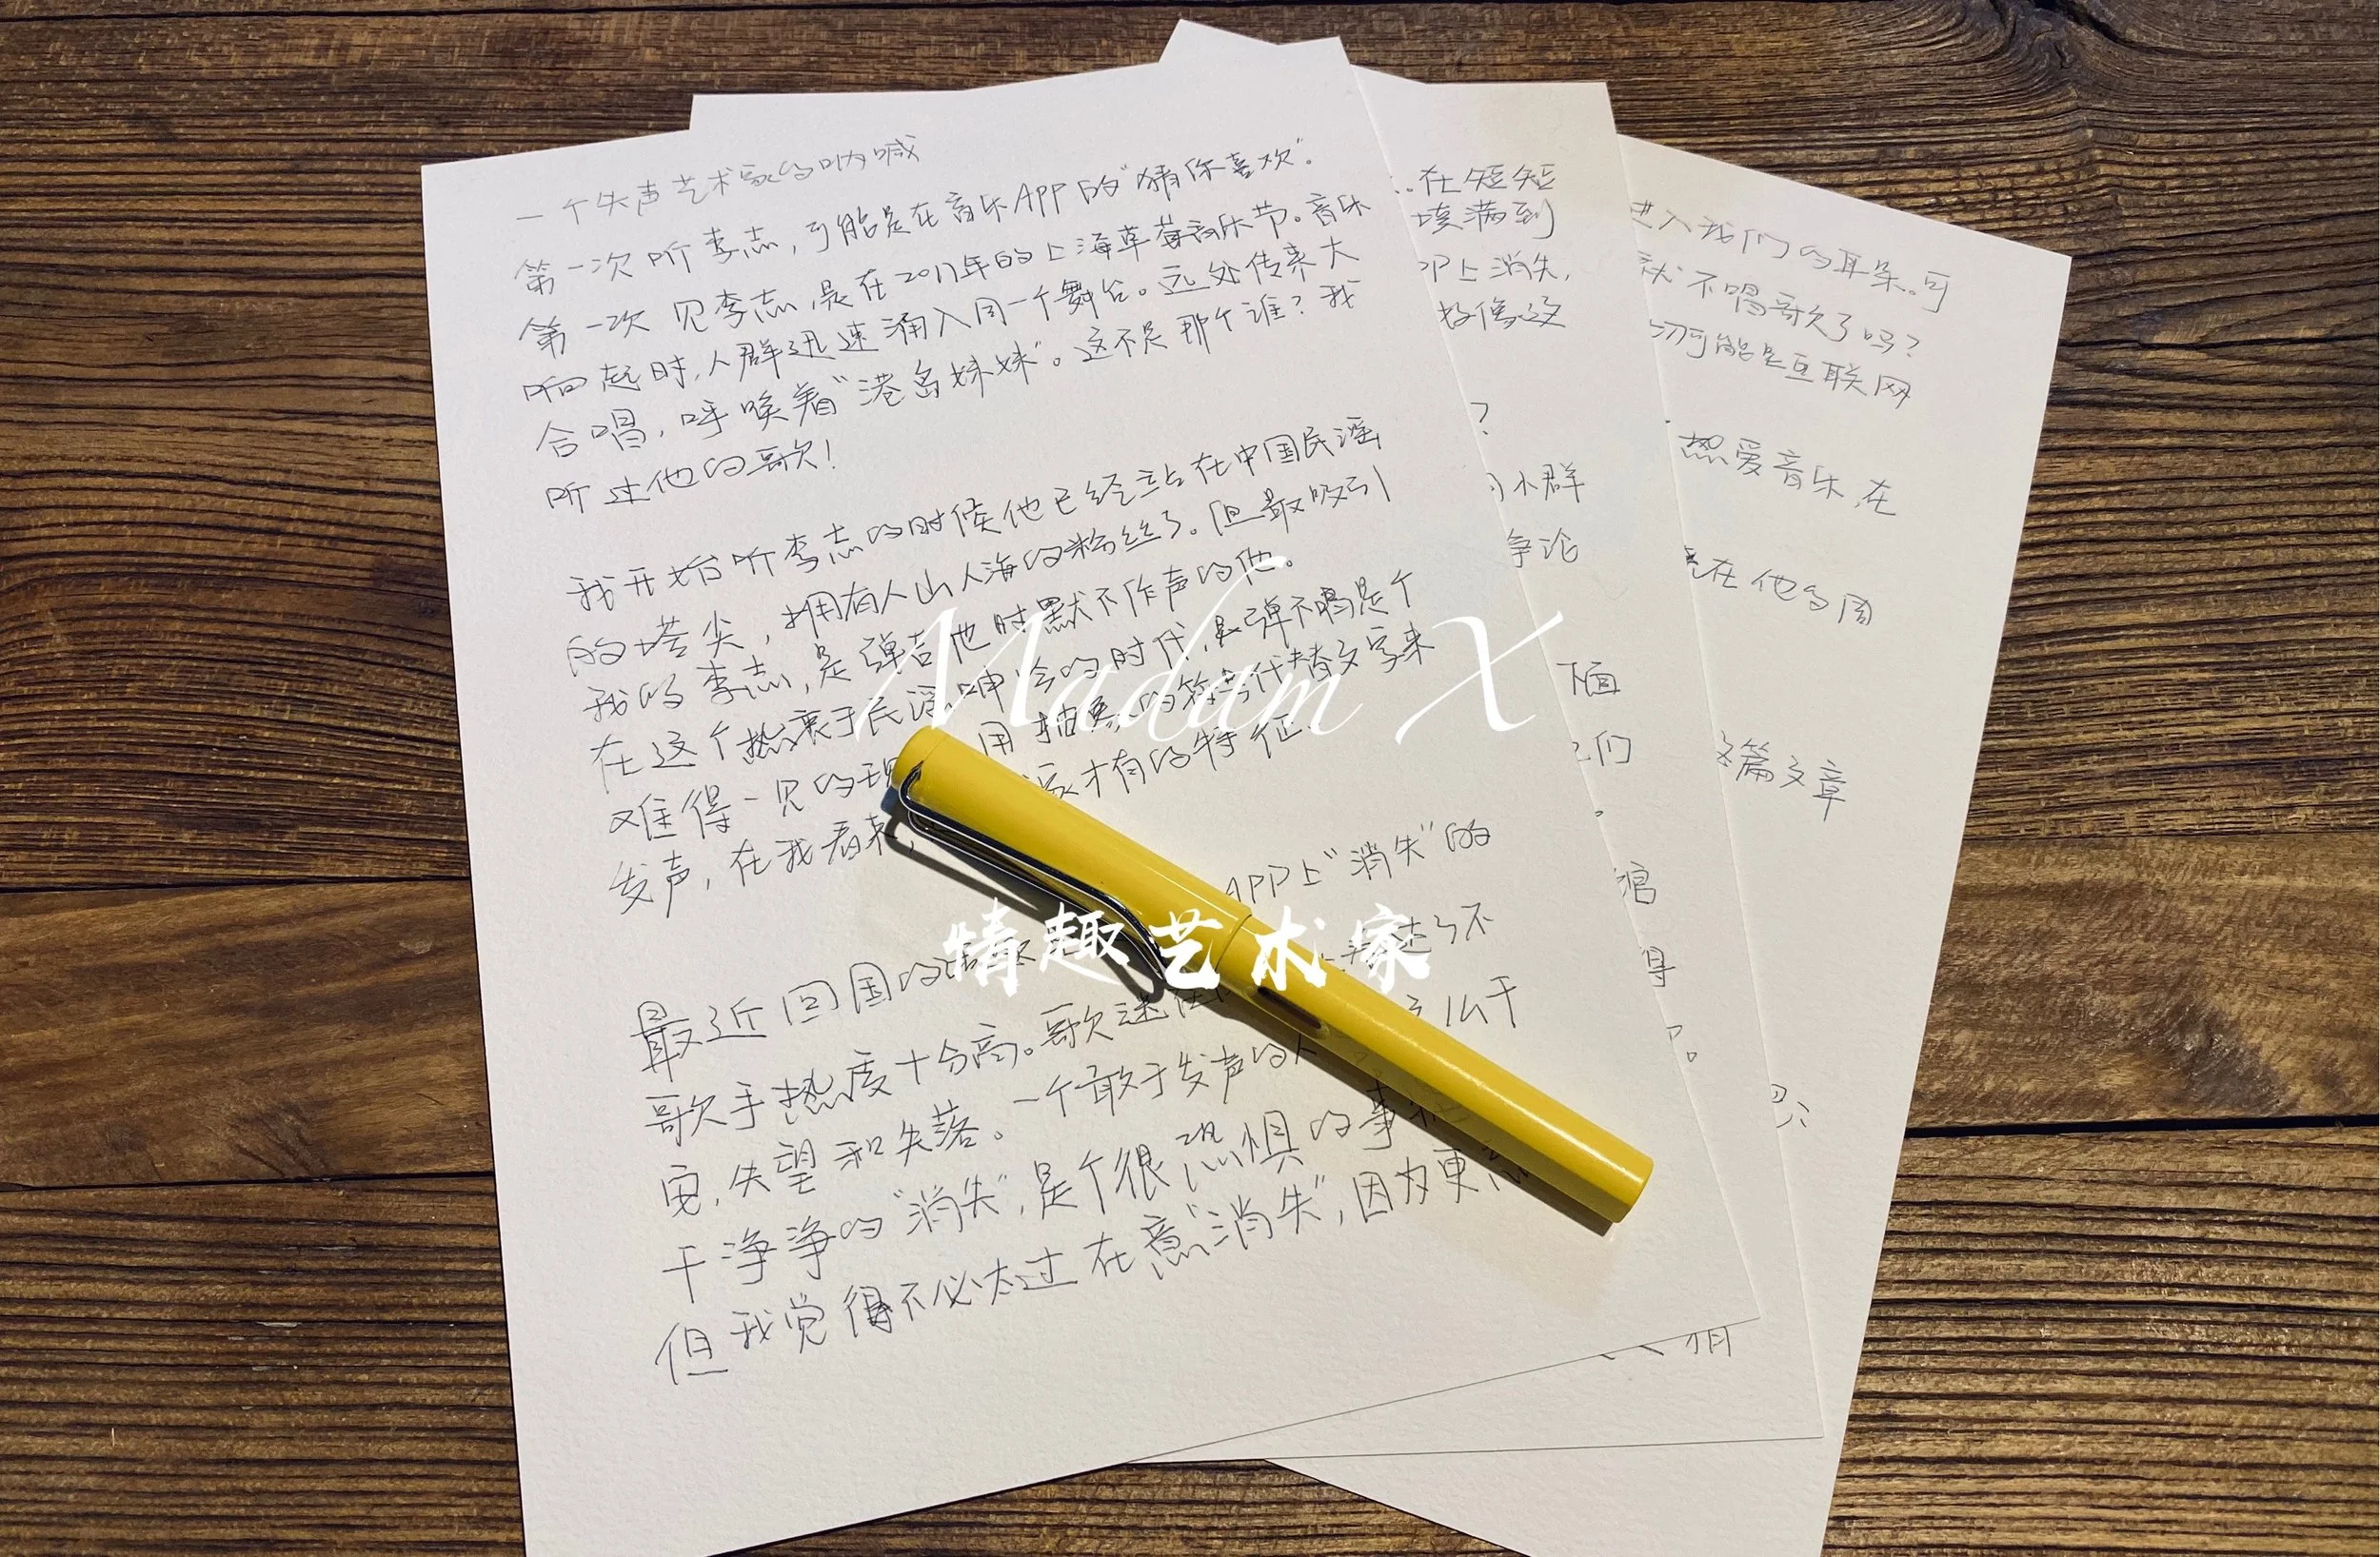 一个失声艺术家的呐喊
第一次听李志,可能是在音乐APP的"猜你喜欢"。
第一次见李志,是在2017年的上海草莓音乐节。音乐
响起时,人群迅速涌入同一个舞台。远处传来大
合唱,呼唤着"港岛妹妹"。这不是那个谁?我
听过他的歌!
我开始听李志的时候他已经站在中国民谣
的塔尖,拥有人山人海的粉丝了。但最吸引
我的李志,是弹吉他时默不作声的他。
在这个热衷于民谣呻吟的时代,只弹不唱是个
难得一见的现 用抽象的符号代替文字来
发声,在我看来, 家才有的特征.
APP上"消失"的
最近回国的 了不
歌手热度十分高。歌迷 么干
定,失望和失落。一个敢于发声的人
干净净的"消失",是个很恐惧的事
但我觉得不必太过在意"消失",因为更
Madam X
情趣艺术家
..在短短
填满到
PP上消失,
好像这
?
小群
争论
下面
们
。
馆
得
。
进入我们的耳朵.可
就不唱歌了吗?
切可能是互联网
热爱音乐,在
在他的周
这篇文章